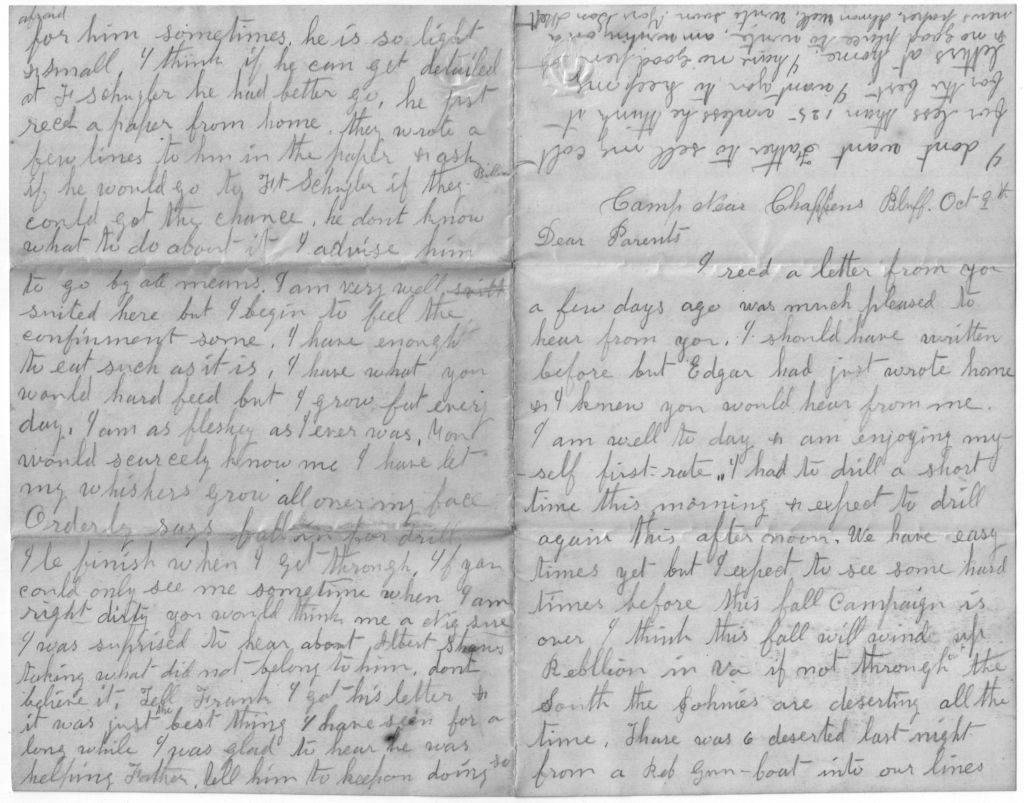 Camp Near Chaffens Bluff. Oct 9th
Dear Parents
I recd a letter from you
a few days ago was much pleased to
hear from you. I should have written
before but Edgar had just wrote home
& I knew you would hear from me.
I am well to day & am enjoying my-
-self first-rate, I had to drill a short
time this morning & expect to drill
again this after noon. We have easy
times yet but I expect to see some hard
times before this fall Campaign is
over I think this fall will wind up
Rebllion in Va if not through the
South the Johnies are deserting all the
time. Thare was 6 deserted last night
from a Reb Gun-boat into our lines
afraid
for him sometimes, he is so light
& small I think if he can get detailed
at Ft Schuyler he had better go, he just
recd a paper from home. they wrote a
few lines to him in the paper & ask
if he would go to Ft Schuyler if they
could get the chance, he dont know
what to do about it I advise him
to go by all means. I am very well
suited here but I begin to feel the
confinment some. I have enough
to eat such as it is, I have what you
would hard feed but I grow fat every
day. I am as fleshy as I ever was, You
would scarcely know me I have let
my whiskers grow all over my face
Orderly says fall in for drill
I le finish when I get through. If you
could only see me sometime when I am
right dirty you would think me a Nig sure
I was suprised to hear about Albert
taking what did not belong to him, dont
believe it, Tell Frank I got his letter &
it was just the best thing I have seen for a
long while I was glad to hear he was
helping Father, tell him to keep on doing so
I dont want Father to sell my colt
for less than 125 unless he think it
for the best I want you to keep my
letters at home, I have no good pen
& no good place to write, am writing on a
news paper, Almon well, write soon. Your Son